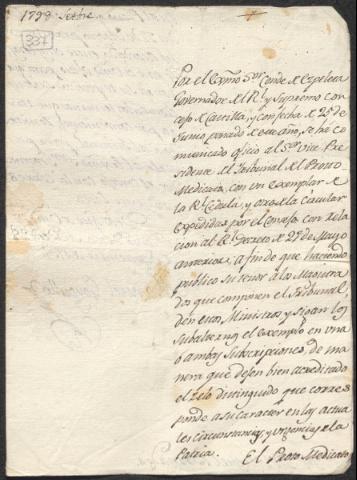 1799 Setbre
337
Por el Exmo Sor Conde de Ezpeleta
Governador del Rl y Supremo con
cejo de Castilla, y con fecha de 25 de
Junio pasado de este año, se há co
municado oficio al Sor Vice Pre
sidente del Tribunal del Proto
Medicato, con un exemplar de
la Rl Cedula, y otro de la circular
expedidas por el Consejo con rela
cion al Rl Decreto de 29 de Mayo
anterior; a fin de que haciendo
publico su tenor a los Individuos
que componen el Tribunal,
den estos Ministros y sigan los
subalternos el exemplo en una
ó ambas subscripciones, de ma
nera que dejen bien acreditado
el zelo distinguido que corres
ponde a su caracter en las actua
les circunstancias, y urgencias de la
Patria. El Proto Medicato